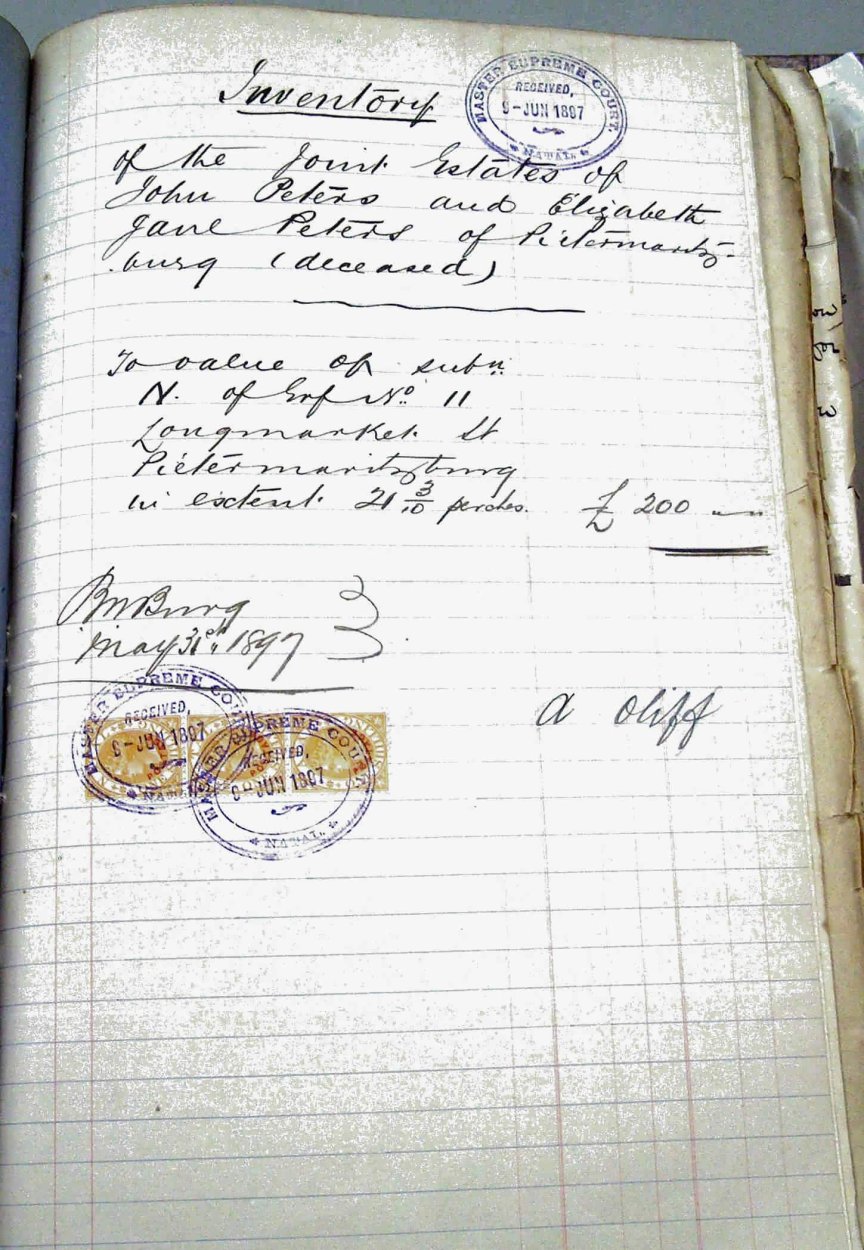 Inventory
MASTER SUPREME COURT
RECEIVED,
9-JUN 1897
NATAL
of the Joint Estates of
John Peters and Elizabeth
Jane Peters of Pietermaritz-
burg (deceased)
To value of subn.
N. of Erf No. 11
Longmarket St
Pietermaritzburg
in extent 21 3/10 perches. £ 200 " "
PMBurg
May 31st, 1897
A Oliff
MASTER SUPREME COURT
RECEIVED,
9-JUN 1897
NATAL
MASTER SUPREME COURT
RECEIVED,
9-JUN 1897
NATAL